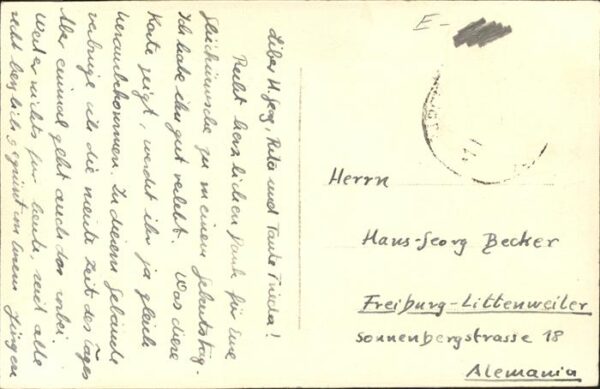 Liber H. Georg, Rita und Tante Frieda!
Recht herzlichen Dank für Eure
Glückwünsche zu meinem Geburtstag.
Ich habe ihn gut verlebt. Was diese
Karte zeigt, werdet ihr ja gleich
herausbekommen. In diesem Gebäude
verbringe ich die meiste Zeit des Tages
Aber einmal geht auch das vorbei.
Weiter nichts für heute, seid alle
recht herzlich gegrüsst von Eurem Jürgen
E-
Herrn
Hans-Georg Becker
Freiburg-Littenweiler
Sonnenbergstrasse 18
Alemania